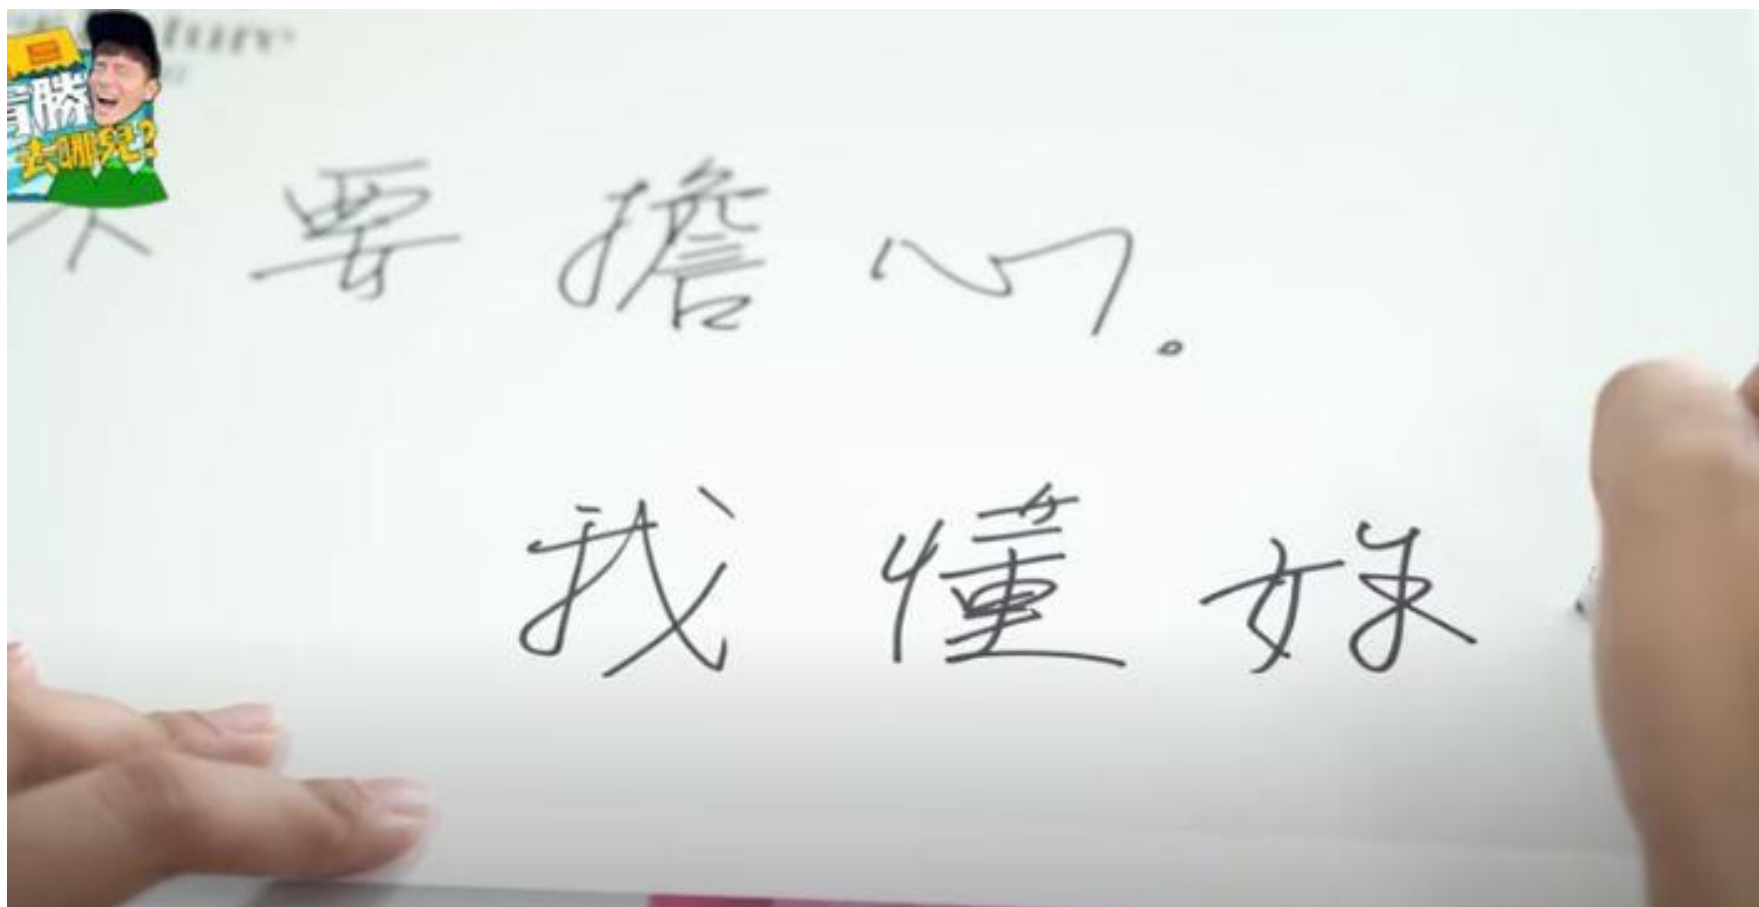 有勝
去哪兒?
不要擔心。
我懂妳